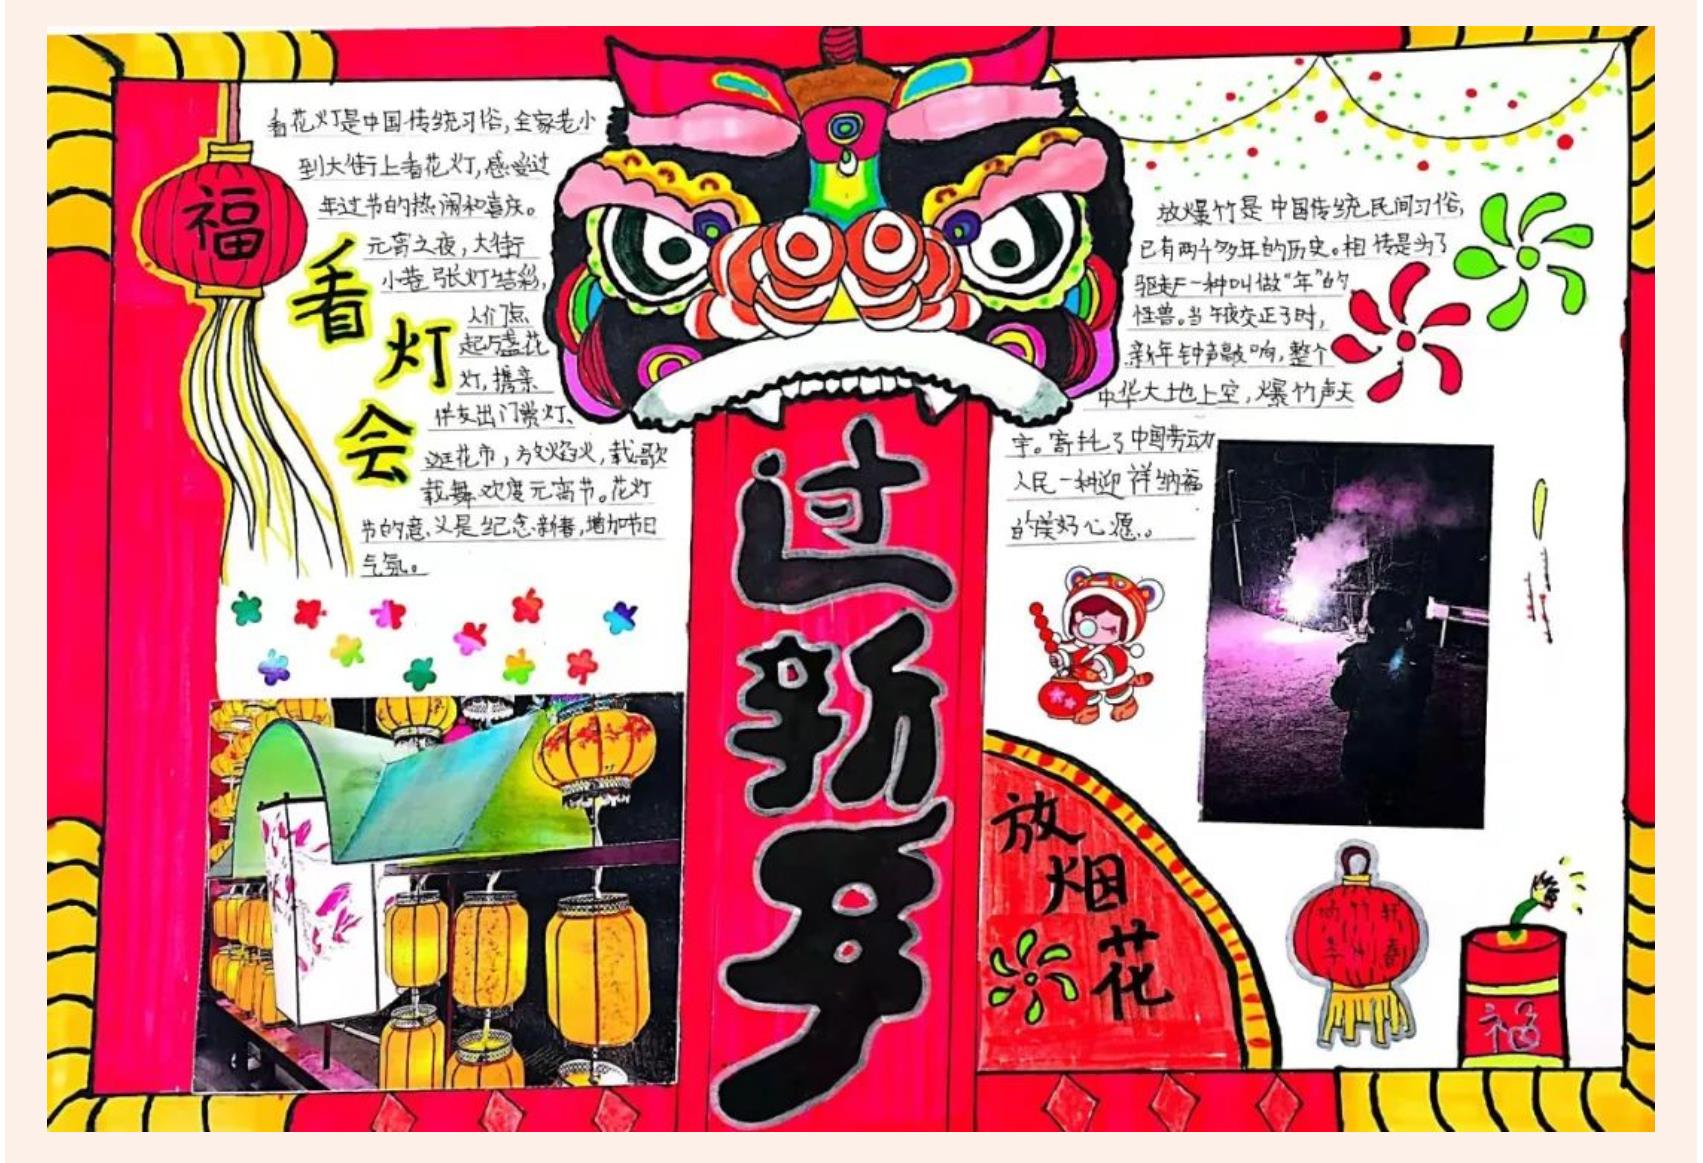 福
看花灯是中国传统习俗,全家老小
到大街上看花灯,感受过
年过节的热闹和喜庆。
元宵之夜,大街
小巷张灯结彩,
人们点
起万盏花
灯,携亲
伴友出门赏灯、
逛花市,放焰火,载歌
载舞欢度元宵节。花灯
节的意义是纪念新春,增加节日
气氛。
看灯会
过新年
放爆竹是中国传统民间习俗,
已有两千多年的历史。相传是为了
驱赶一种叫做“年”的
怪兽。当午夜交正子时,
新年钟声敲响,整个
中华大地上空,爆竹声天
宇。寄托了中国劳动
人民一种迎祥纳福
的美好心愿。
放烟花
福